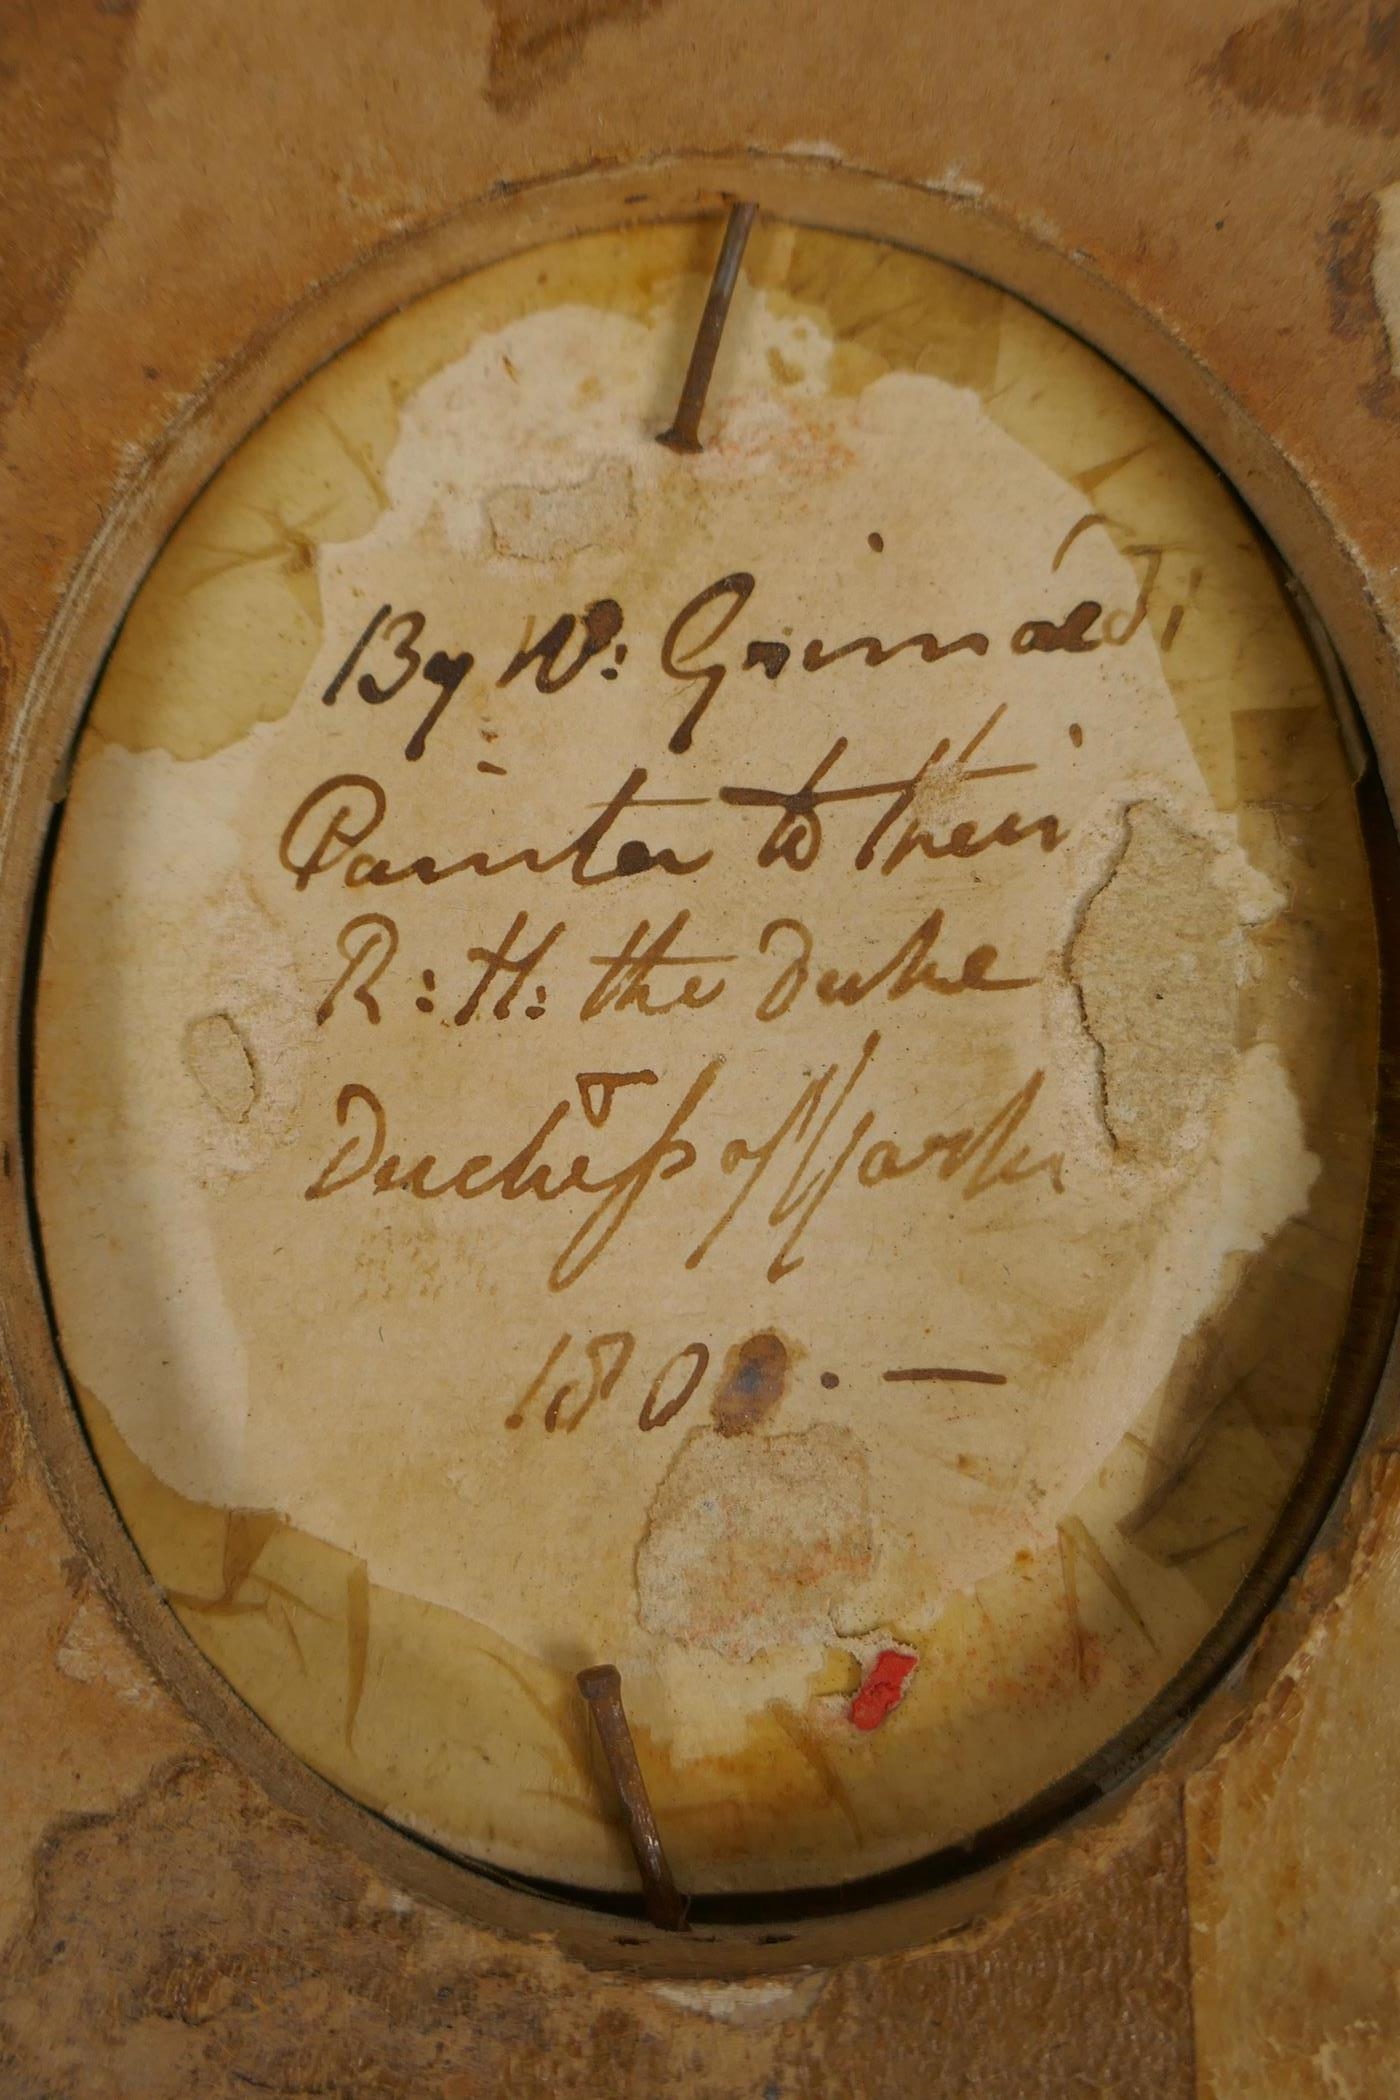 By W: Grimaldi
Painter to their
R: H: the Duke
Duchess of York
180